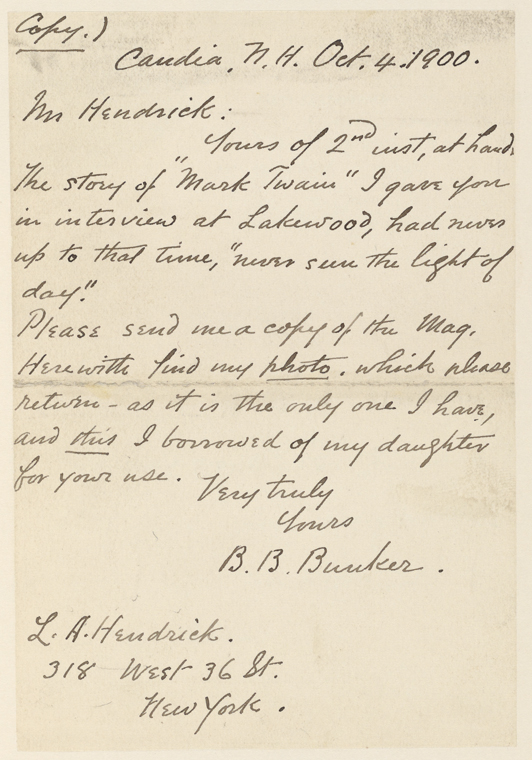 Copy.)
Candia, N.H. Oct. 4. 1900.
Mr Hendrick:
Yours of 2nd inst, at hand.
The story of "Mark Twain" I gave you
in interview at Lakewood, had never
up to that time, "never seen the light of
day."
Please send me a copy of the Mag.
Herewith find my photo. which please
return - as it is the only one I have,
and this I borrowed of my daughter
for your use.
Very truly
Yours
B. B. Bunker.
L. A. Hendrick.
318 West 36 St.
New York.